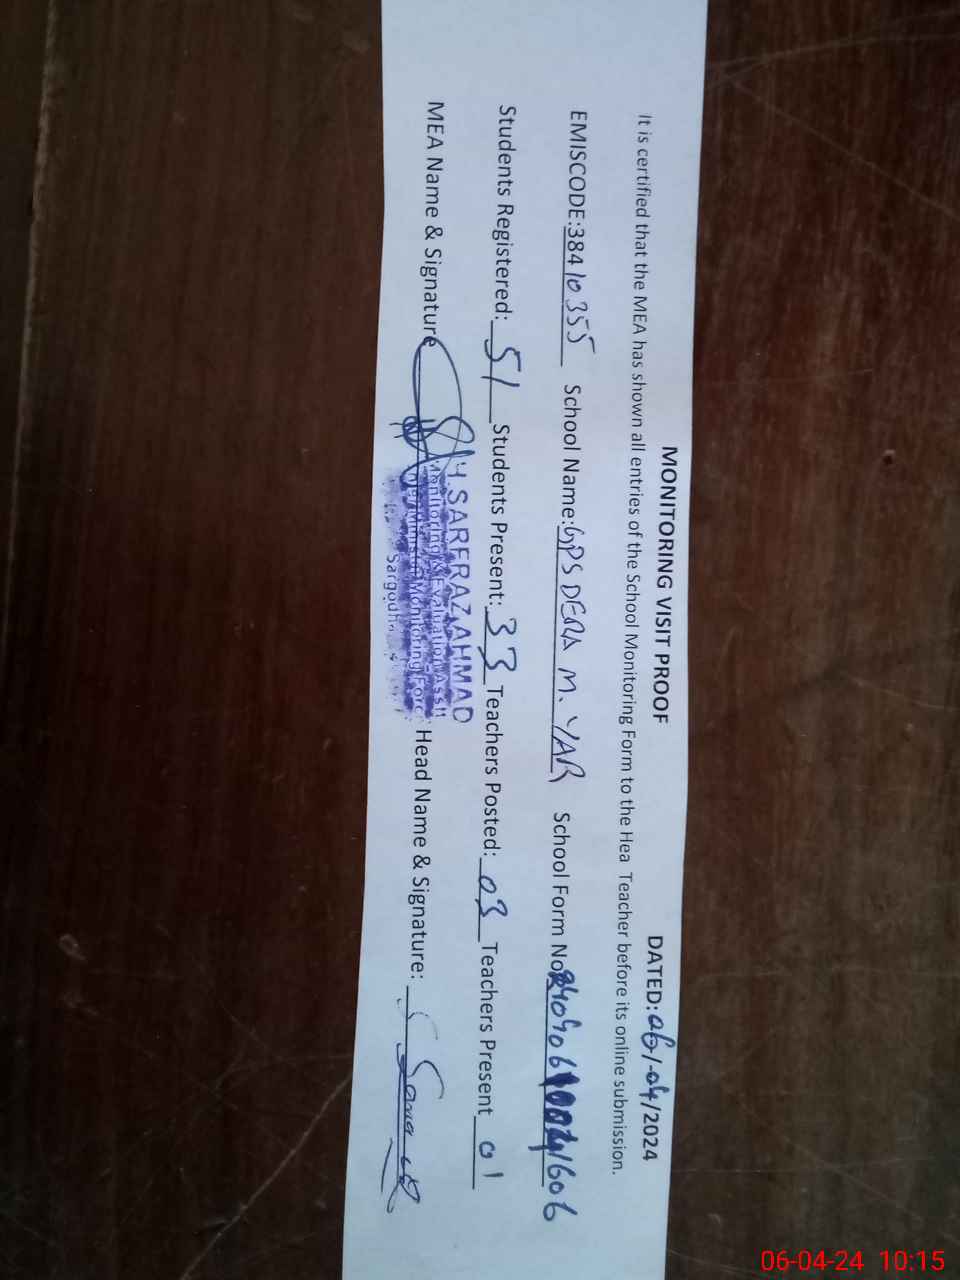 MONITORING VISIT PROOF
DATED: 06/04/2024
It is certified that the MEA has shown all entries of the School Monitoring Form to the Hea Teacher before its online submission.
EMISCODE:38410355 School Name: GPS DERA M. YAR School Form No
Students Registered: 51 Students Present: 33 Teachers Posted: 03 Teachers Present 01
MEA Name & Signature Head Name & Signature:
M.SARFRAZ AHMAD
Monitoring & Evaluation Asstt
Monitoring Force
Sargodha
06-04-24 10:15